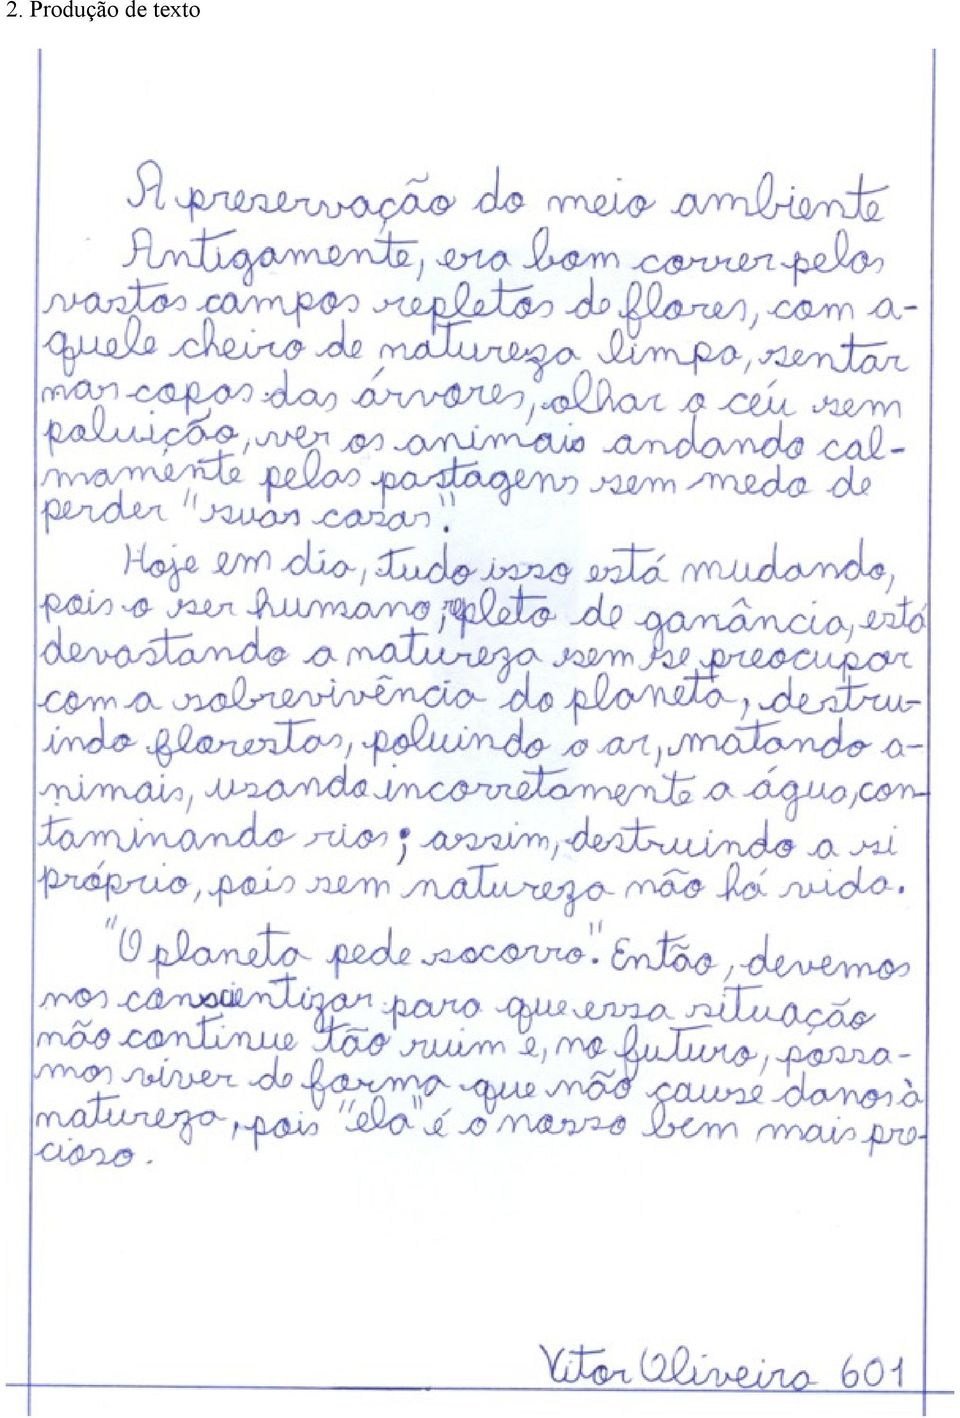 2. Produção de texto
A preservação do meio ambiente
Antigamente, era bom correr pelos
vastos campos repletos de flores, com a-
quele cheiro de natureza limpa, sentar
nas copas das árvores, olhar o céu sem
poluição, ver os animais andando cal-
mamente pelas pastagens sem medo de
perder "suas casas".
Hoje em dia, tudo isso está mudando,
pois o ser humano, repleto de ganância, está
devastando a natureza sem se preocupar
com a sobrevivência do planeta, destru-
indo florestas, poluindo o ar, matando a-
nimais, usando incorretamente a água, con-
taminando rios; assim, destruindo a si
próprio, pois sem natureza não há vida.
"O planeta pede socorro". Então, devemos
nos conscientizar para que essa situação
não continue tão ruim e, no futuro, possa-
mos viver de forma que não cause danos à
natureza, pois "ela" é o nosso bem mais pre-
cioso.
Vitor Oliveira 601